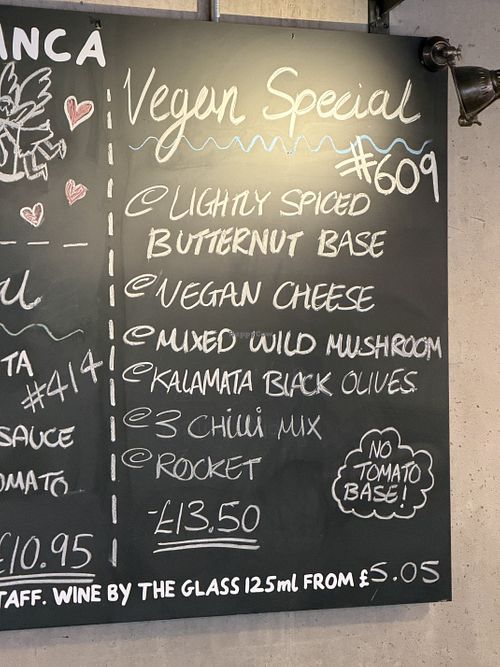 ANCA
TA
#414
SAUCE
OMATO
£10.95
Vegan Special
#609
LIGHTLY SPICED
BUTTERNUT BASE
VEGAN CHEESE
MIXED WILD MUSHROOM
KALAMATA BLACK OLIVES
3 CHILLI MIX
ROCKET
£13.50
NO
TOMATO
BASE!
TAFF. WINE BY THE GLASS 125ml FROM £5.05